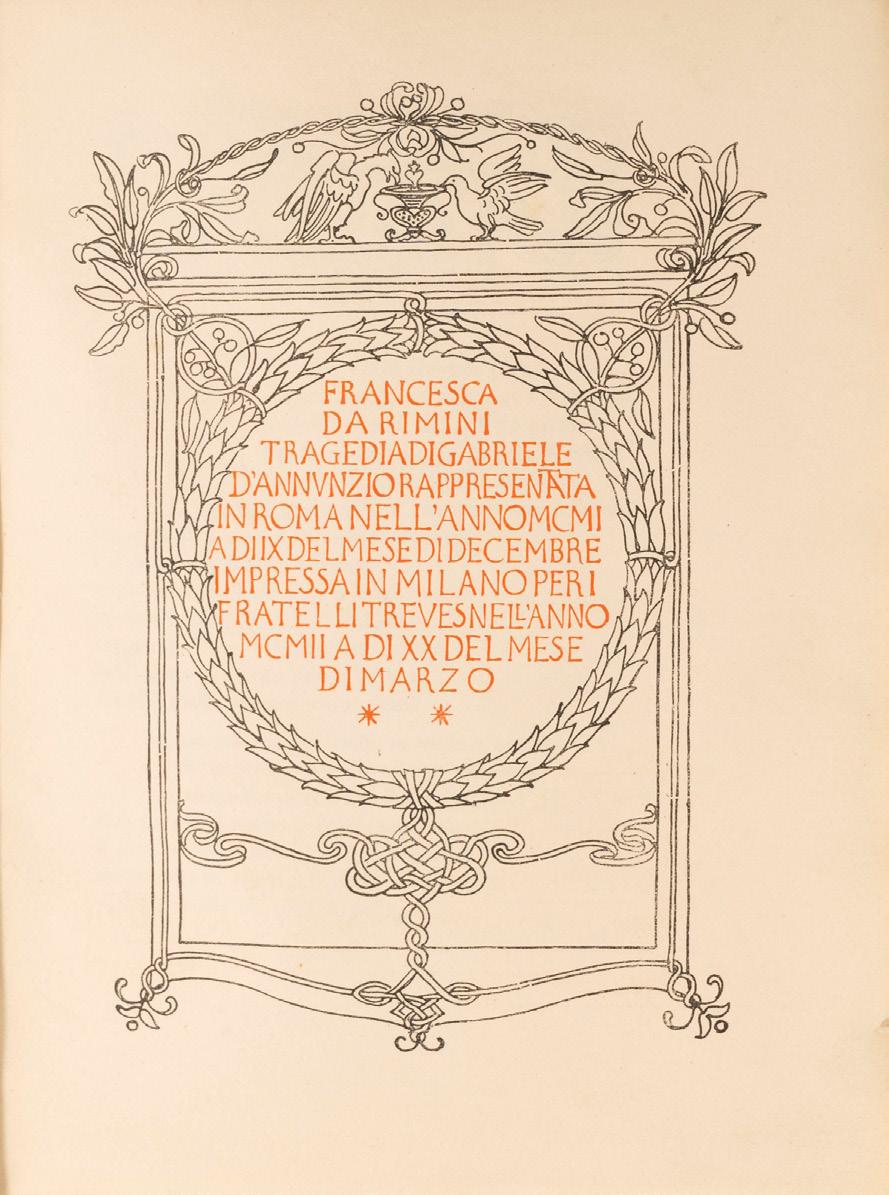 FRANCESCA
DA RIMINI
TRAGEDIA DI GABRIELE
D'ANNVNZIO RAPPRESENTATA
IN ROMA NELL'ANNO MCMI
A DI IX DEL MESE DI DECEMBRE
IMPRESSA IN MILANO PER I
FRATELLI TREVES NELL'ANNO
MCMII A DI XX DEL MESE
DI MARZO